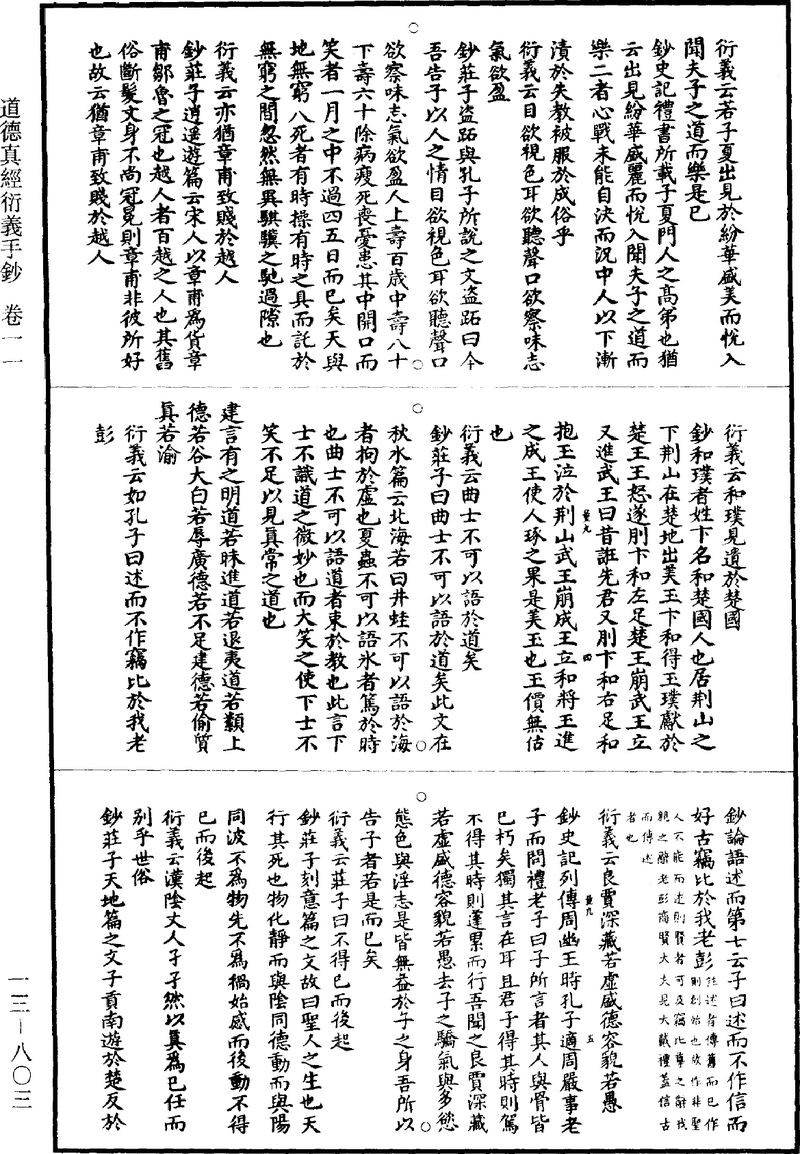 衍義云若子夏出見於紛華盛美而悅入
聞夫子之道而樂是已
鈔史記禮書所載子夏門人之高弟也猶
云出見紛華盛麗而悅入聞夫子之道而
樂二者心戰未能自決而況中人以下漸
漬於失教被服於成俗乎
衍義云目欲視色耳欲聽聲口欲察味志
氣欲盈
鈔莊子盜跖與孔子所說之文盜跖曰今
吾告子以人之情目欲視色耳欲聽聲口
欲察味志氣欲盈人上壽百歲中壽八十
下壽六十除病瘦死喪憂患其中開口而
笑者一月之中不過四五日而已矣天與
地無窮人死者有時操有時之具而託於
無窮之間忽然無異騏驥之馳過隙也
衍義云亦猶章甫致賤於越人
鈔莊子逍遥遊篇云宋人以章甫爲貨章
甫鄒魯之冠也越人者百越之人也其舊
俗斷髮文身不尚冠冕則章甫非彼所好
也故云猶章甫致賤於越人
衍義云和璞見遺於楚國
鈔和璞者姓卞名和楚國人也居荆山之
下荆山在楚地出美玉卞和得玉璞獻於
楚王王怒遂刖卞和左足楚王崩武王立
又進武王曰昔誑先君又刖卞和右足和
抱玉泣於荆山武王崩成王立和將王進
之成王使人琢之果是美玉也王價無估
也
衍義云曲士不可以語於道矣
鈔莊子曰曲士不可以語於道矣此文在
秋水篇云北海若曰井蛙不可以語於海
者拘於虛也夏蟲不可以語氷者篤於時
也曲士不可以語道者束於教也此言下
士不識道之微妙也而大笑之使下士不
笑不足以見真常之道也
建言有之明道若昧進道若退夷道若纇上
德若谷大白若辱廣德若不足建德若偷質
真若渝
衍義云如孔子曰述而不作竊比於我老
彭
鈔論語述而第七云子曰述而不作信而
好古竊比於我老彭註述者傳舊而已作
則創始也故作非聖
人不能而述則賢者可及竊比尊之辭我
親之辭老彭商賢大夫見大戴禮蓋信古
而傳述
者也
衍義云良賈深藏若虛盛德容貌若愚
鈔史記列傳周幽王時孔子適周嚴事老
子而問禮老子曰子所言者其人與骨皆
已朽矣獨其言在耳且君子得其時則駕
不得其時則蓬累而行吾聞之良賈深藏
若虛盛德容貌若愚去子之驕氣與多慾
態色與淫志是皆無益於子之身吾所以
告子者若是而已矣
衍義云莊子曰不得已而後起
鈔莊子刻意篇之文故曰聖人之生也天
行其死也物化靜而與陰同德動而與陽
同波不爲物先不爲禍始感而後動不得
已而後起
衍義云漢陰丈人孑孑然以真爲已任而
别乎世俗
鈔莊子天地篇之文子貢南遊於楚反於
道德真經衍義手鈔　卷一一
一三—八〇三